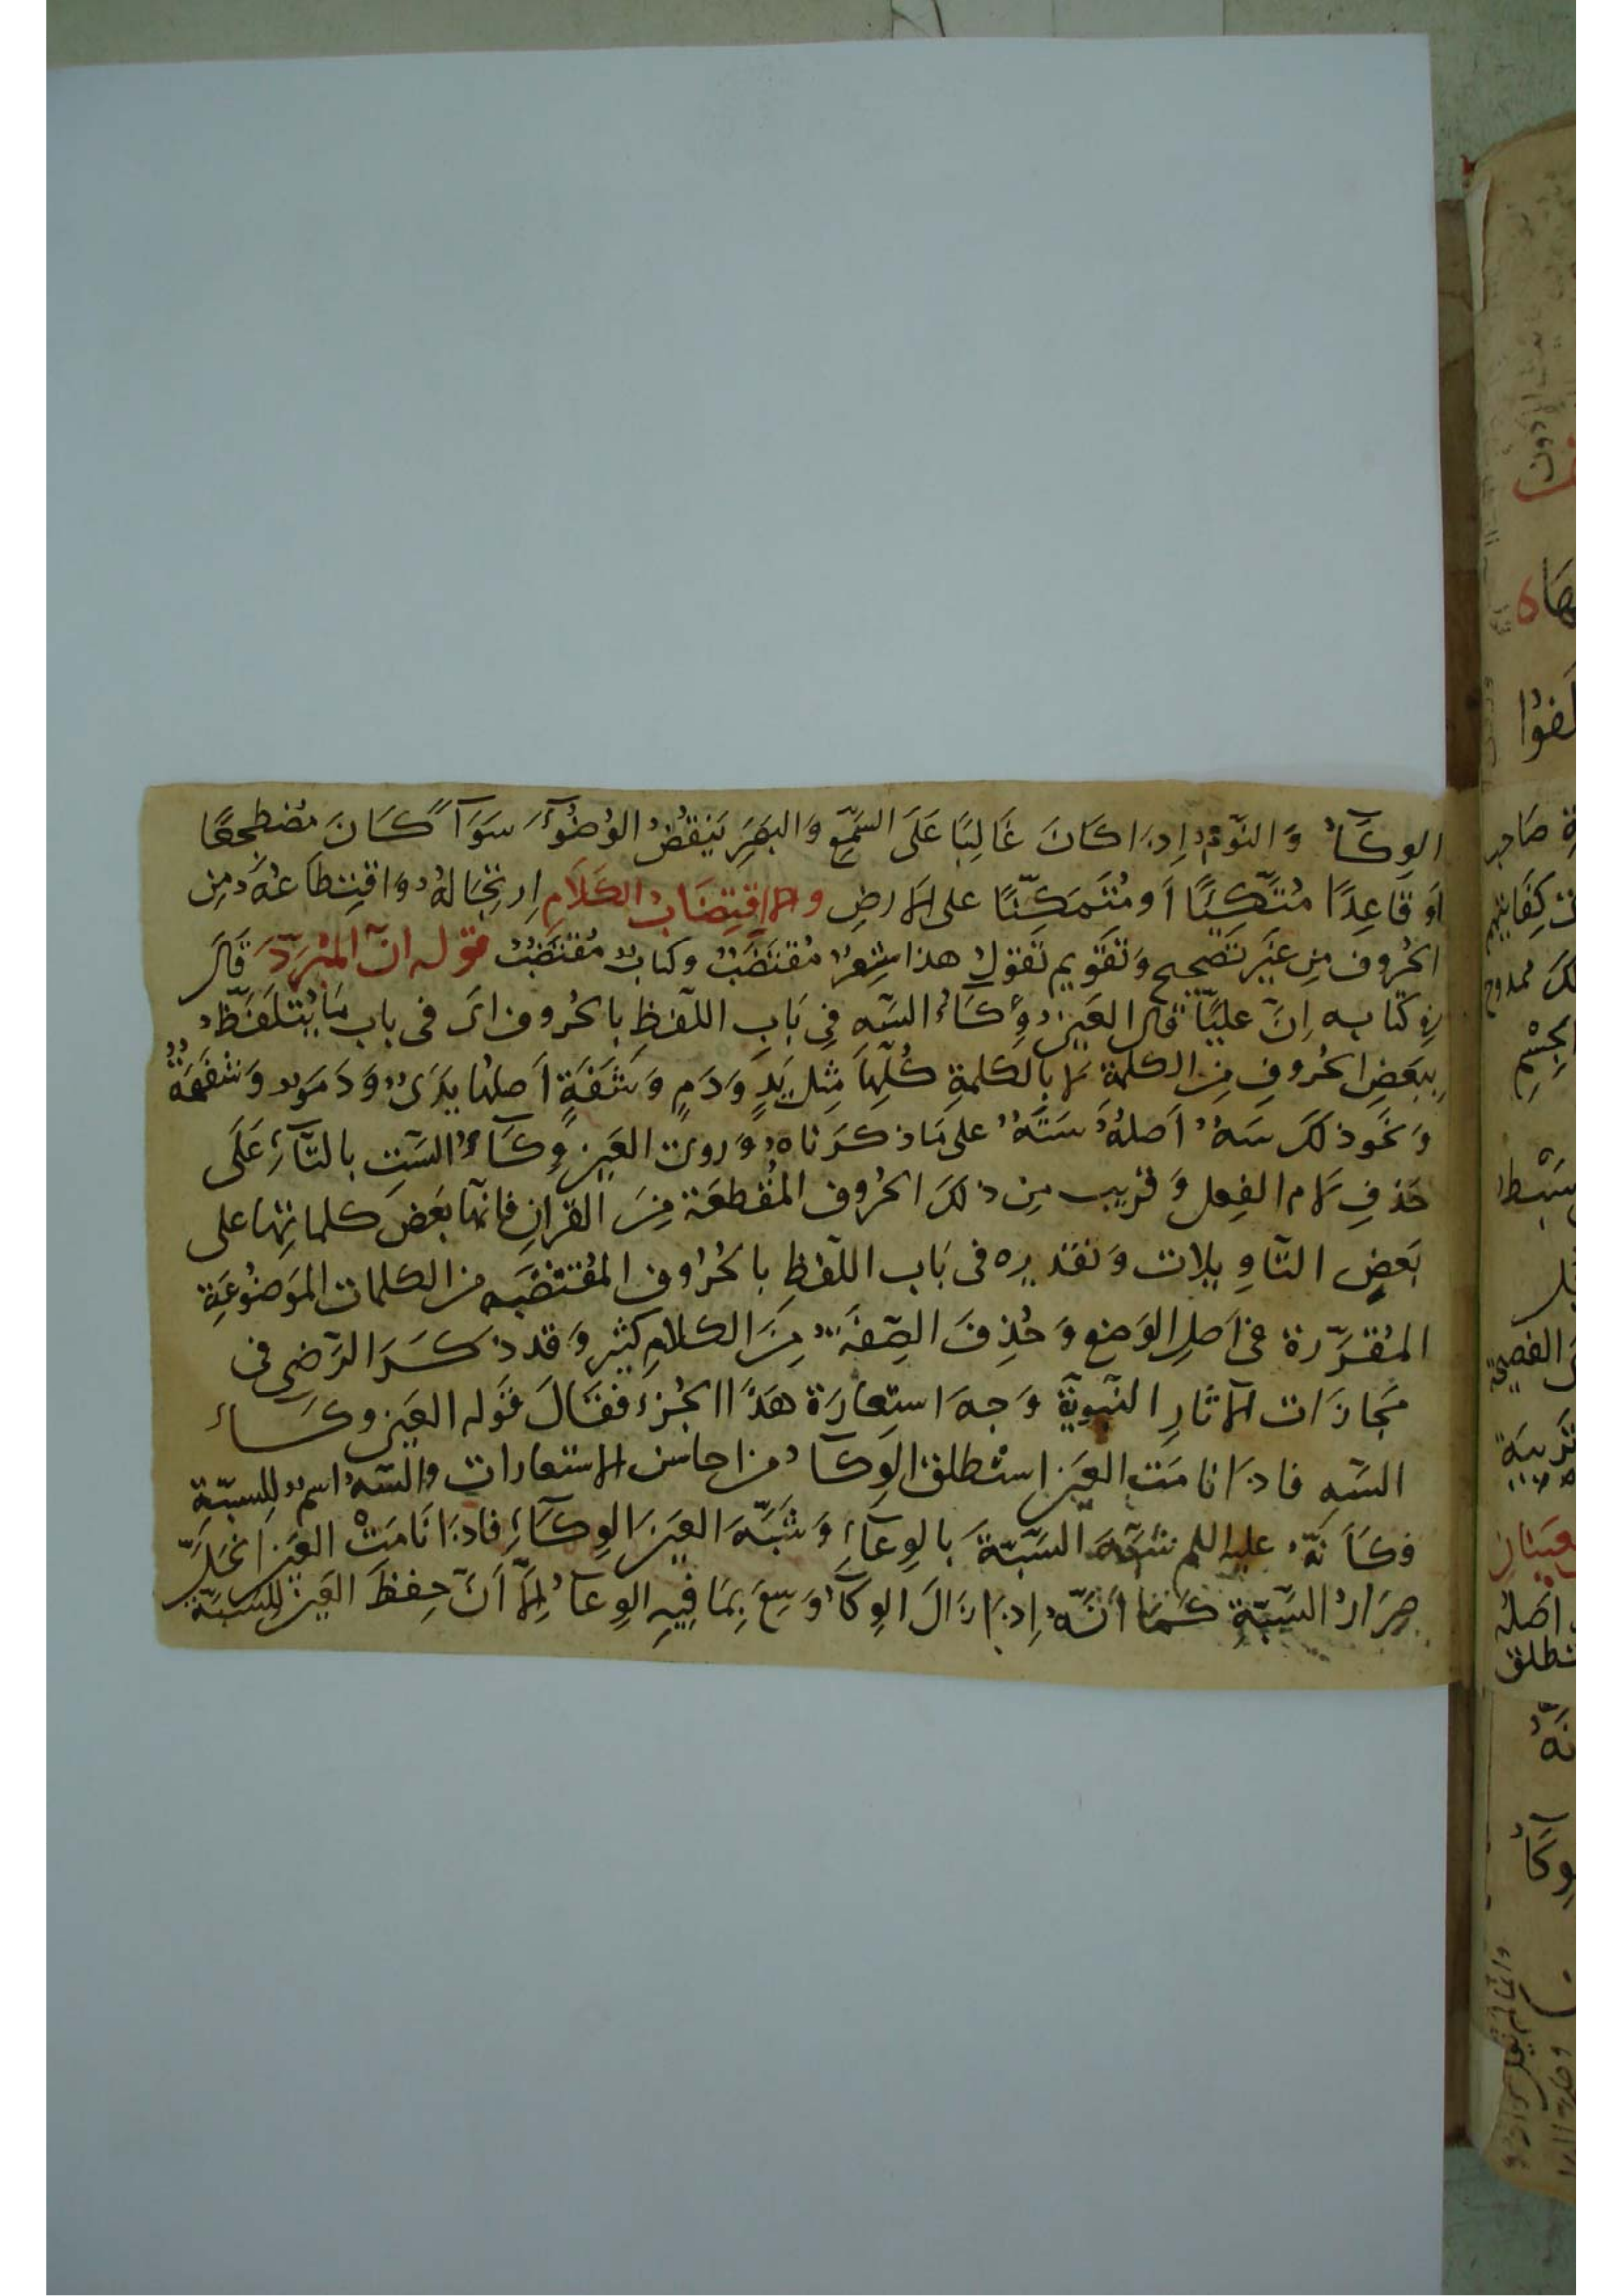 الوِكَآءُ وَالنَّوْمُ اِذَا كَانَ غَالِبًا عَلَى السَّمْعِ وَالبَصَرِ يَنْقُضُ الوُضُوءَ سَوَآءً كَانَ مُضْطَجِعًا
اَوْ قَاعِدًا مُتَّكِئًا اَو مُتَمَكِّنًا على الارضِ والاِقْتِضَابُ الكَلَامِ اِرتِجَالهُ وَاقْتِطَاعُهُ مِن
الحُروف مِن غَيْرِ تَصْحِيحٍ وَتَقْوِيمٍ تَقُولُ هذا شِعْرٌ مُقْتَضَبٌ وكتابٌ مُقْتَضَبٌ قوله انّ المُبَرِّدَ قَالَ
فِي كتابه اِنَّ عليًّا قال العَيْنُ وِكَآءُ السَّهِ فِي بَابِ اللَّفظِ بالحُروف اَىْ فى باب مَا يُتَلَفَّظُ
بِبَعْضِ الحُروفِ مِنَ الكلمةِ لا بالكلمةِ كُلِّهَا مِثل يَدٍ وَدَمٍ وَشَفَةٍ اَصلها يَدَىٌ وَدَمَوٌ وَشَفَهَةٌ
وَنَحو ذلكَ سَهٌ اَصلهُ سَتَهٌ على مَا ذكرَناهُ وَروىَ العَيْن وِكَآءُ السَّتِ بالتَّآءِ عَلَى
حَذفِ لام الفِعل وَقَريب مِن ذلكَ الحُروف المُقَطعَة مِنَ القرانِ فانهَّا بَعْضَ كلماتِهَا على
بَعْضِ التَّاوِيلات وَتقديره فى بَاب اللَّفْظِ بالحُرُوف المُقْتَضَبه من الكلمات المَوْضُوعَةِ
المُقَرَّرة فى اَصلِ الوَضع وَحُذِفَ الصّفَةُ مِنَ الكلامِ كثير وَقد ذكرَ الرَّضى فى
مَجَازَات الاثارِ النَّبويّةِ وَجهَ استعارَة هَذَا الجُزء فقَالَ قَوله العَين وكَاء
السَّهِ فاذَا نامَتِ العَيْن استُطلق الوِكآءُ من احاسن الاستعارات والسَّهُ اسمٌ لِلسبَّةِ
فكَاَنّهُ عليه السلم شَبَّهَ السَّبَّةَ بالوِعآءِ وَشبَّهَ العَيْنَ الوِكآءِ فاذَا نَامَتْ العَيْن انحَلَّ
صِرَارُ السَّبَّةِ كَمَا اَنَّهُ اِذا زَالَ الوِكآءُ وَسِعَ بِمَا فِيهِ الوِعآءُ اِلاّ اَنَّ حِفْظَ العَيْن لِلسَبَّة